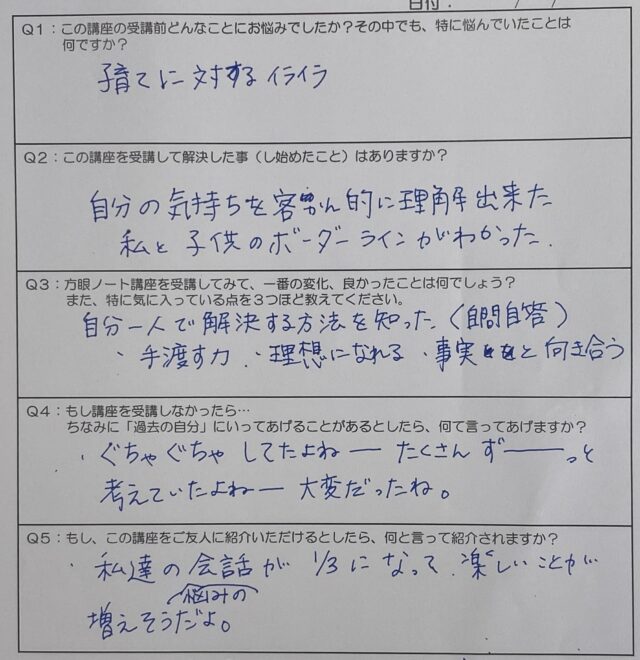 日付: / /
Q1:この講座の受講前どんなことにお悩みでしたか?その中でも、特に悩んでいたことは
何ですか?
子育てに対するイライラ
Q2:この講座を受講して解決した事(し始めたこと)はありますか?
自分の気持ちを客かん的に理解出来た
私と子供のボーダーラインがわかった.
Q3:方眼ノート講座を受講してみて、一番の変化、良かったことは何でしょう?
また、特に気に入っている点を3つほど教えてください。
自分一人で解決する方法を知った(自問自答)
・手渡す力 ・理想になれる ・事実と向き合う
Q4:もし講座を受講しなかったら…
ちなみに「過去の自分」にいってあげることがあるとしたら、何て言ってあげますか?
・ぐちゃぐちゃしてたよねー たくさんずーーっと
考えていたよねー 大変だったね。
Q5:もし、この講座をご友人に紹介いただけるとしたら、何と言って紹介されますか?
・私達の会話が 1/3になって 楽しいことが
悩みの
増えそうだよ。